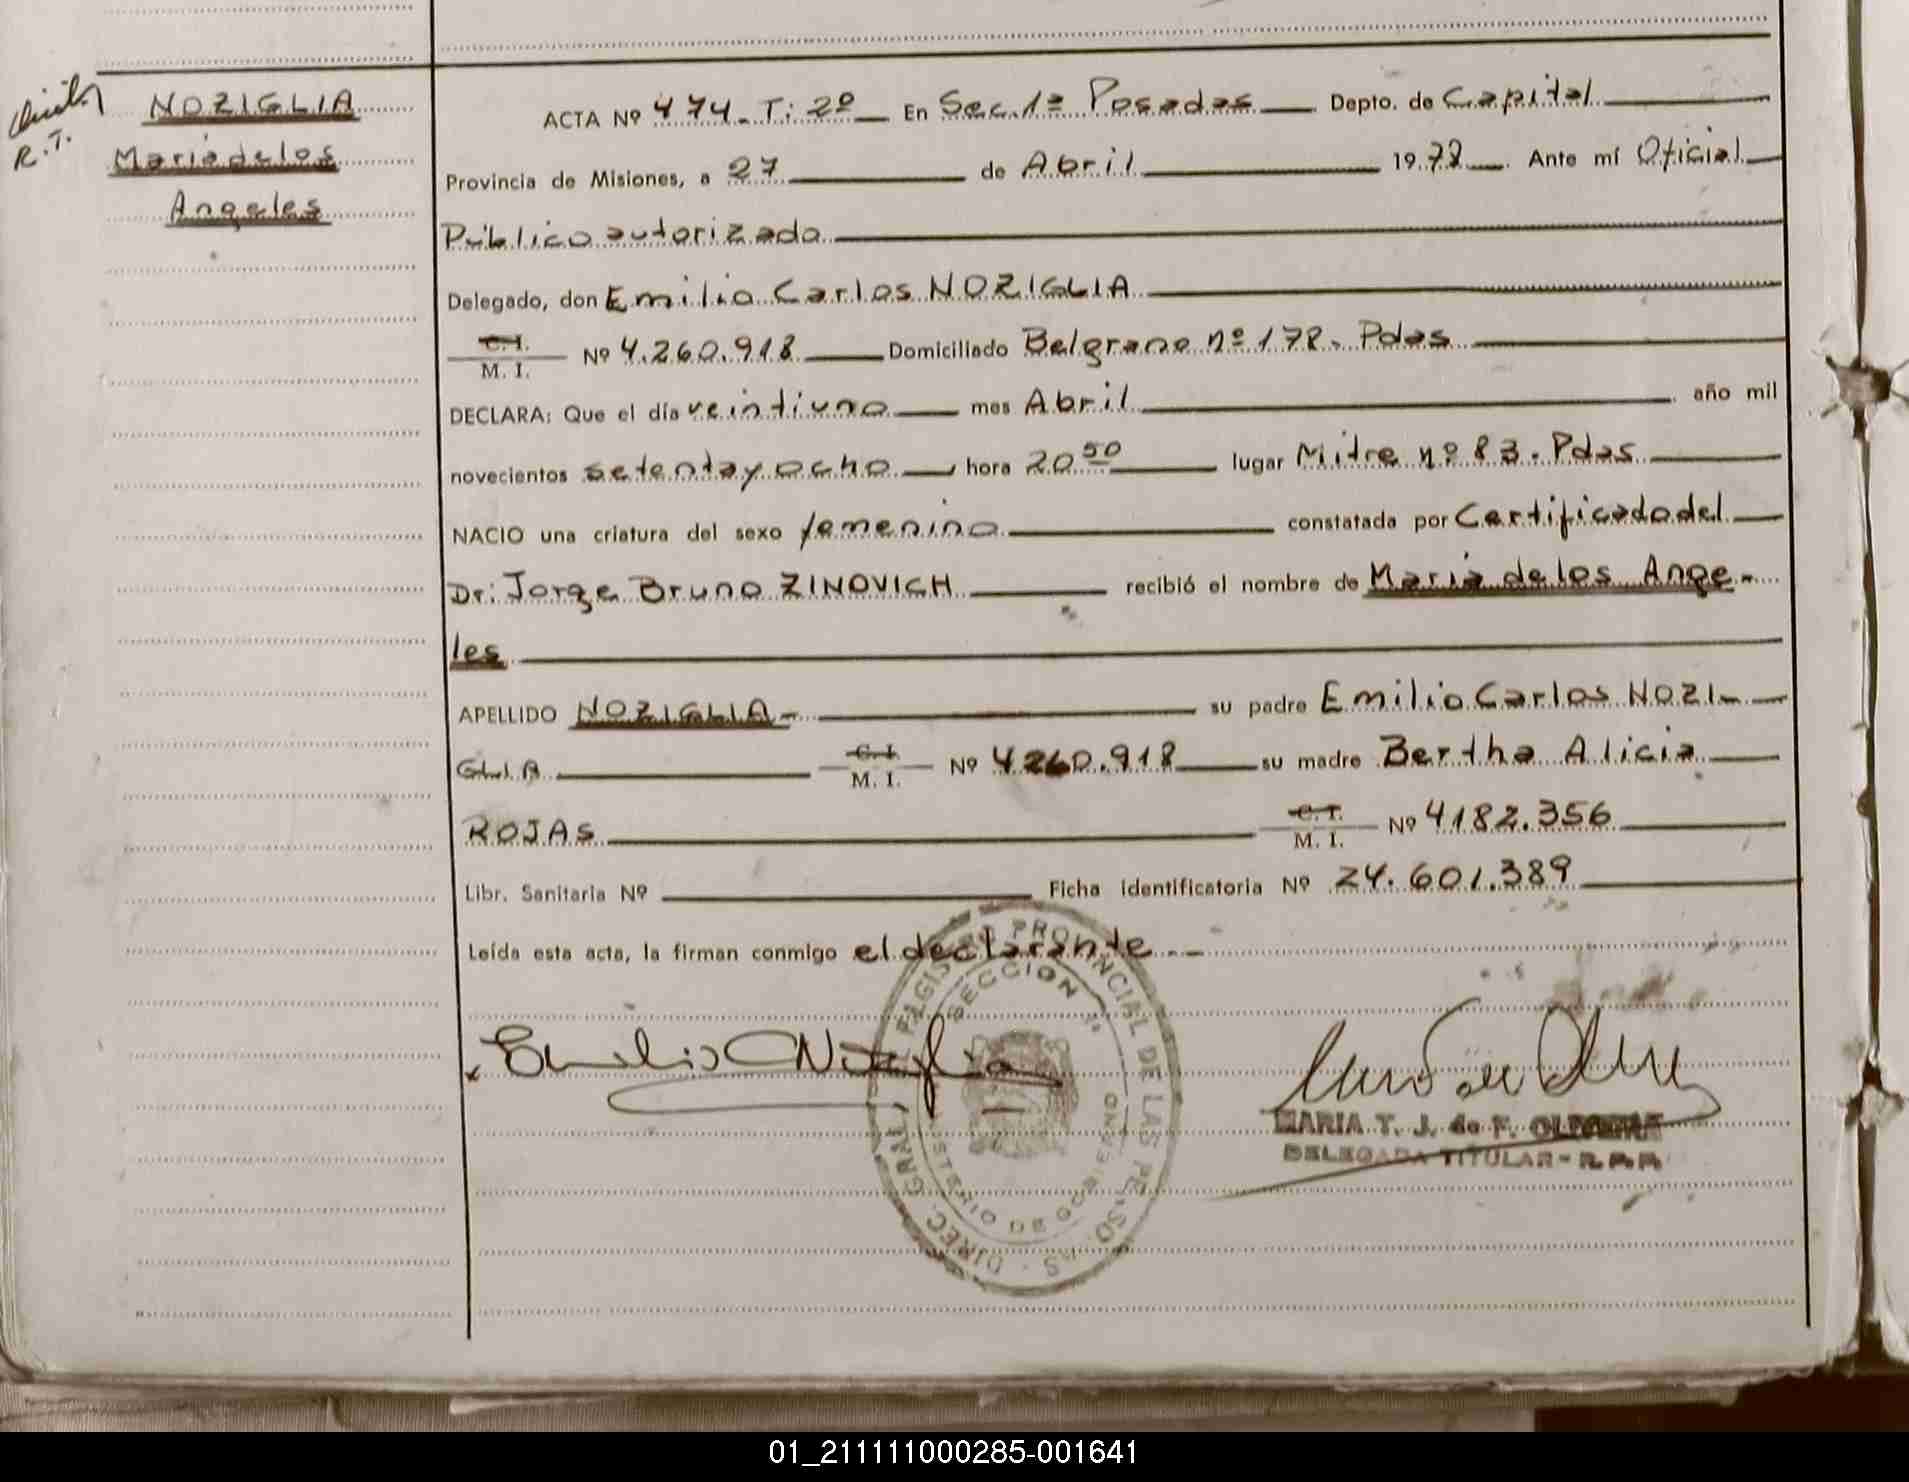 R.T.
NOZIGLIA
Maria de los
Angeles
ACTA Nº 474. T: 2º En Sec. 1ª Posadas Depto. de Capital
Provincia de Misiones, a 27 de Abril 1978. Ante mí Oficial
Público autorizado
Delegado, don Emilio Carlos NOZIGLIA
C.I.
M. I. Nº 4.260.918 Domiciliado Belgrano nº 178. Pdas
DECLARA: Que el día veintiuno mes Abril año mil
novecientos setenta y ocho hora 20 50 lugar Mitre nº 83. Pdas
NACIO una criatura del sexo femenino constatada por Certificado del
Dr: Jorge Bruno ZINOVICH recibió el nombre de Maria de los Ange-
les
APELLIDO NOZIGLIA - su padre Emilio Carlos NOZI-
GLIA C.I. M. I. Nº 4260.918 su madre Bertha Alicia
ROJAS C.I. M. I. Nº 4182.356
Libr. Sanitaria Nº Ficha identificatoria Nº 24.601.389
Leída esta acta, la firman conmigo el declarante.--
Emilio C Noziglia
DIREC. GRAL. REGISTRO PROVINCIAL DE LAS PERSONAS
SECCION 1ª
MINISTERIO DE GOBIERNO
MARIA T. J. de F. OLIVEIRA
DELEGADA TITULAR - R.P.P.
01_211111000285-001641